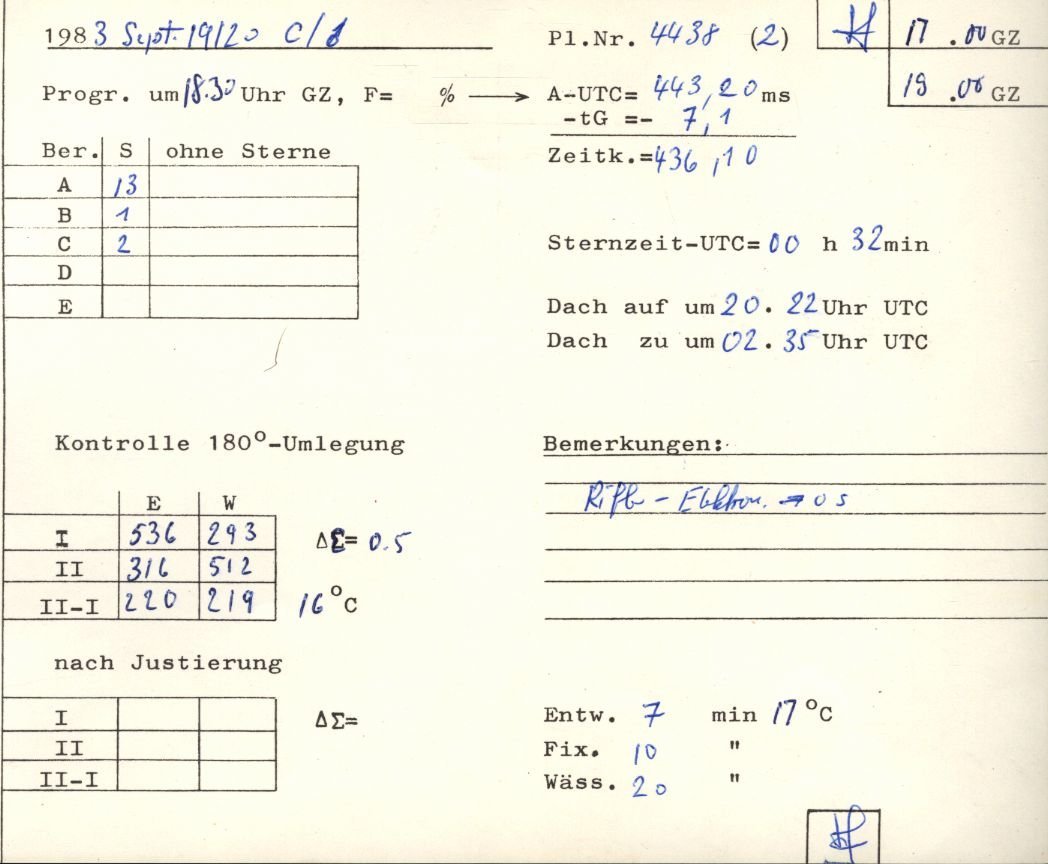 1983 Sept. 19/20 C/1
Pl.Nr. 4438 (2)
17 .00 GZ
19 .00 GZ
Progr. um 18.30 Uhr GZ, F= % → A-UTC= 443,20 ms
-tG =- 7,1
Zeitk.=436,10
Ber. S ohne Sterne
A 13
B 1
C 2
D
E
Sternzeit-UTC= 00 h 32min
Dach auf um 20. 22 Uhr UTC
Dach zu um 02. 35 Uhr UTC
Kontrolle 180°-Umlegung
E W
I 536 293
II 316 512
II-I 220 219
ΔΣ= 0.5
16 °C
nach Justierung
I
II
II-I
ΔΣ=
Bemerkungen:
0 s
Entw. 7 min 17 °C
Fix. 10 "
Wäss. 20 "